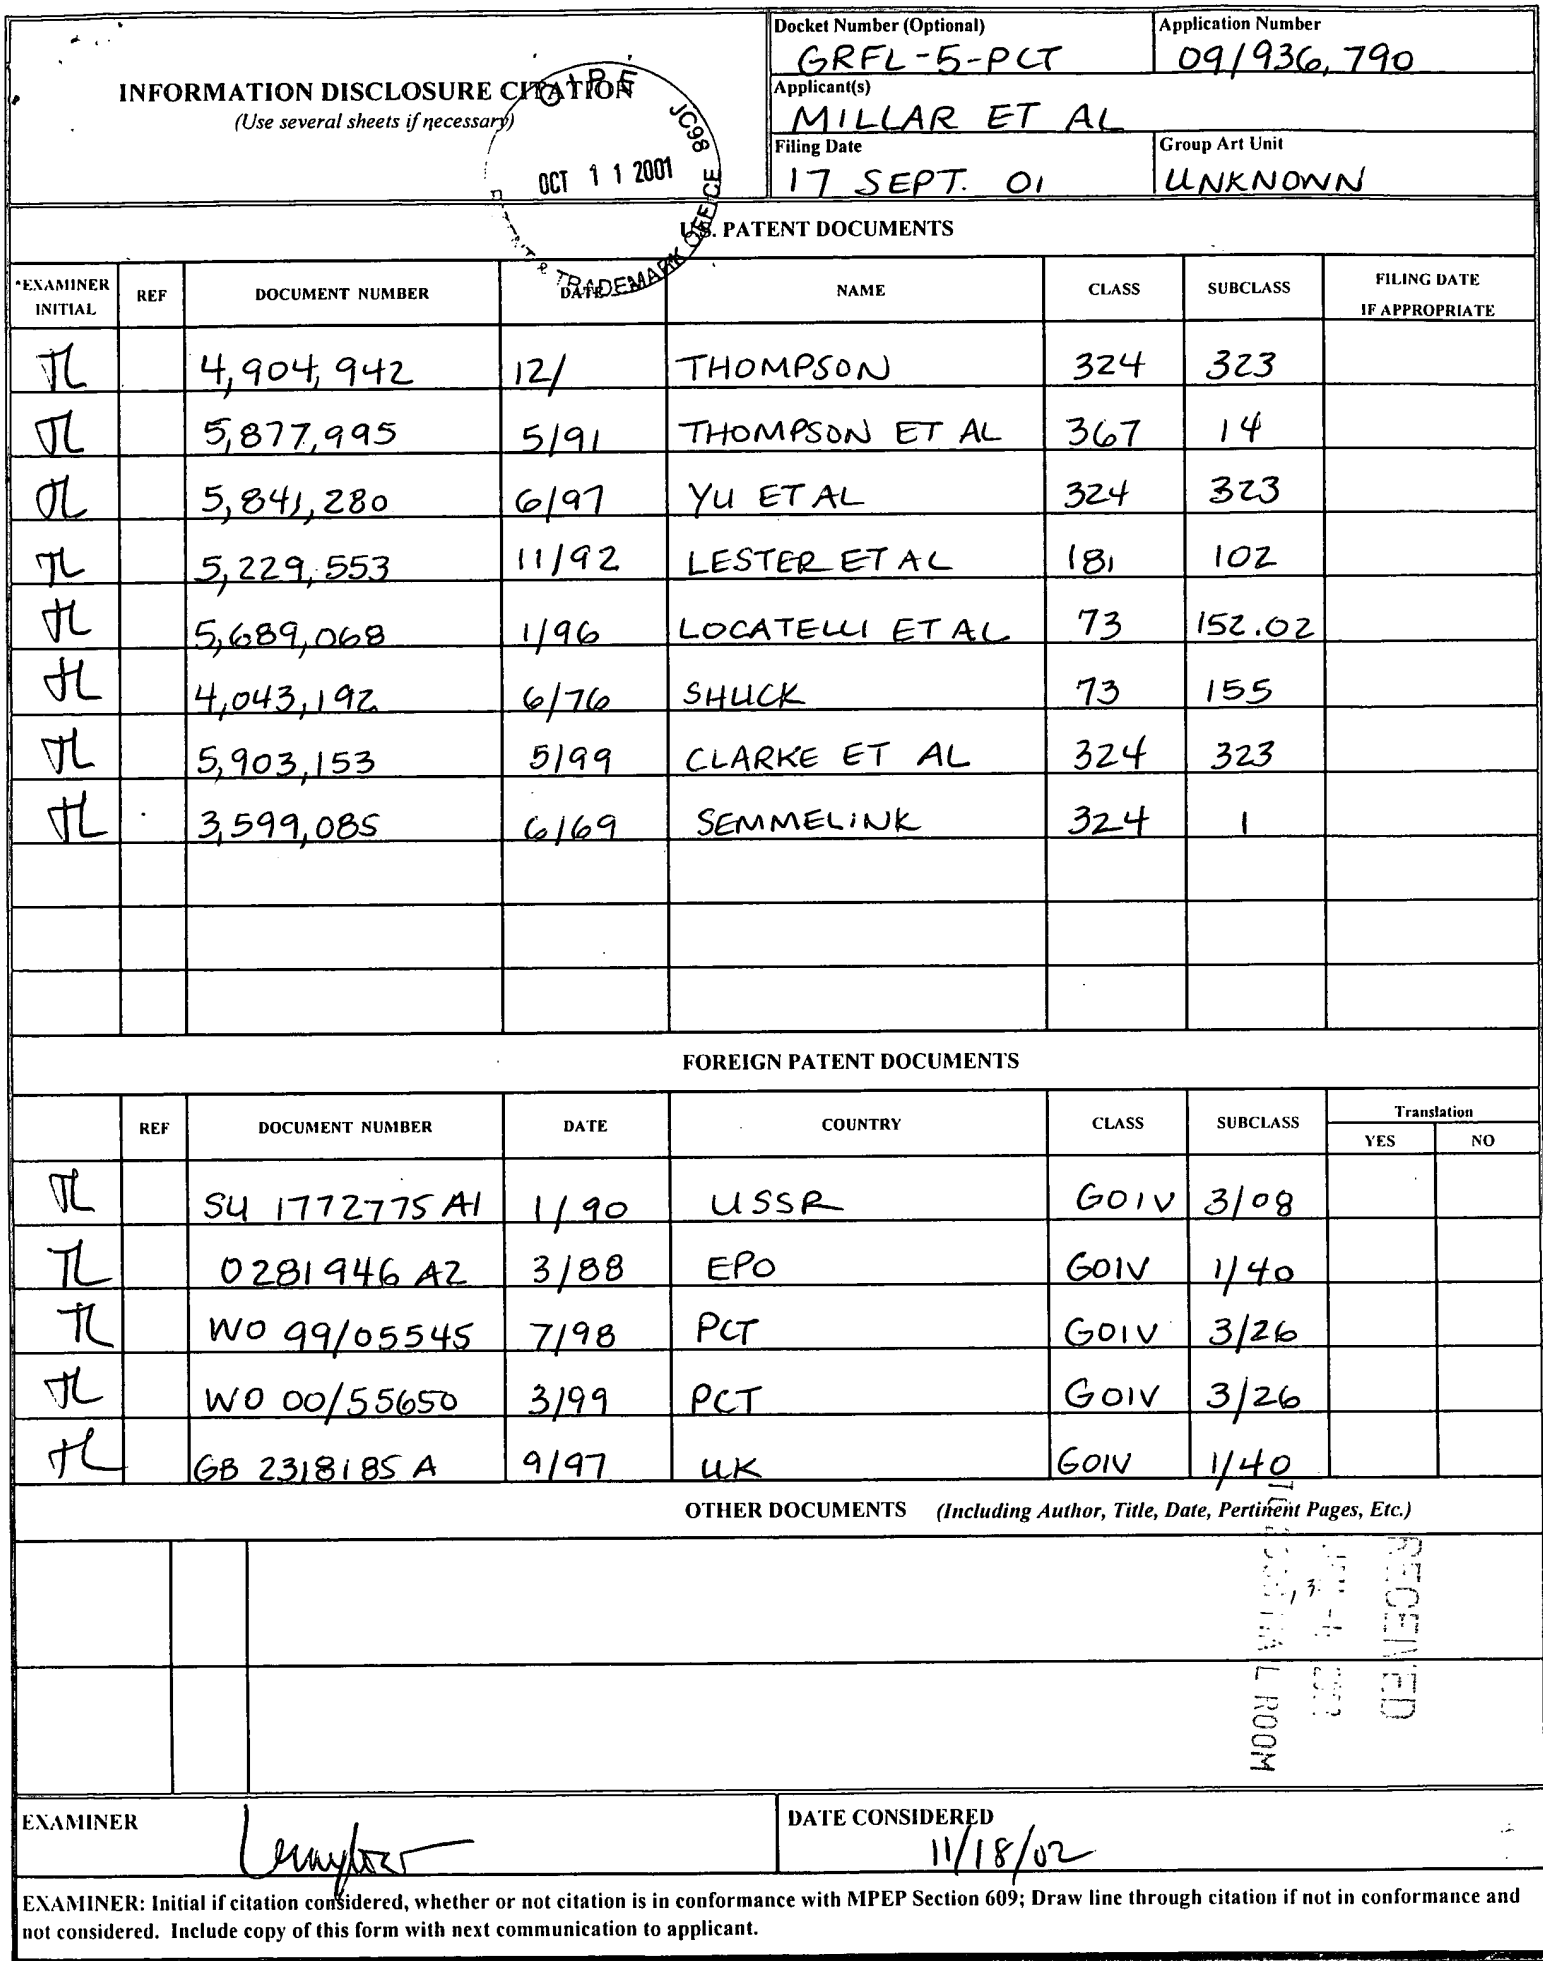 INFORMATION DISCLOSURE CITATION
(Use several sheets if necessary)
O I P E JC98
OCT 1 1 2001
& TRADEMARK OFFICE
Docket Number (Optional)
GRFL-5-PCT
Application Number
09/936,790
Applicant(s)
MILLAR ET AL
Filing Date
17 SEPT. 01
Group Art Unit
UNKNOWN
U.S. PATENT DOCUMENTS
*EXAMINER INITIAL REF DOCUMENT NUMBER DATE NAME CLASS SUBCLASS FILING DATE IF APPROPRIATE
TL 4,904,942 12/ THOMPSON 324 323
TL 5,877,995 5/91 THOMPSON ET AL 367 14
TL 5,841,280 6/97 YU ET AL 324 323
TL 5,229,553 11/92 LESTER ET AL 181 102
TL 5,689,068 1/96 LOCATELLI ET AL 73 152.02
TL 4,043,192 6/76 SHUCK 73 155
TL 5,903,153 5/99 CLARKE ET AL 324 323
TL 3,599,085 6/69 SEMMELINK 324 1
FOREIGN PATENT DOCUMENTS
REF DOCUMENT NUMBER DATE COUNTRY CLASS SUBCLASS Translation YES NO
TL SU 1772775 A1 1/90 USSR G01V 3/08
TL 0281946 A2 3/88 EPO G01V 1/40
TL WO 99/05545 7/98 PCT G01V 3/26
TL WO 00/55650 3/99 PCT G01V 3/26
TL GB 2318185 A 9/97 UK G01V 1/40
OTHER DOCUMENTS (Including Author, Title, Date, Pertinent Pages, Etc.)
RECEIVED
MAIL ROOM
EXAMINER
DATE CONSIDERED
11/18/02
EXAMINER: Initial if citation considered, whether or not citation is in conformance with MPEP Section 609; Draw line through citation if not in conformance and
not considered. Include copy of this form with next communication to applicant.